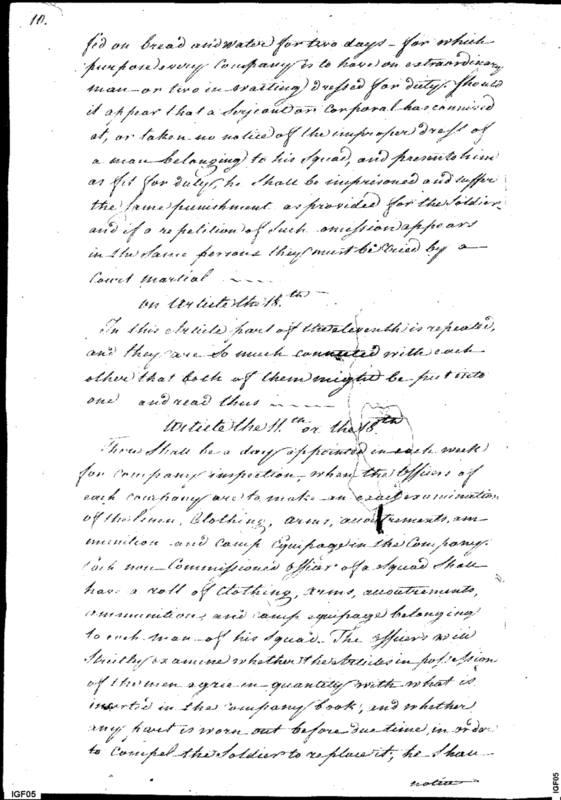 10.
fed on bread and water for two days - for which
purpose every company is to have an extraordinary
man - or two in waiting dressed for duty. Should
it appear that a Serjeant or Corporal has connived
at, or taken no notice of the improper dress of
a man belonging to his Squad, and presents him
as fit for duty, he shall be imprisoned and suffer
the same punishment as provided for the Soldier,
and if a repetition of such omission appears
in the same persons they must be tried by a
Court martial
on Article the 18.th
In this Article part of the eleventh is repeated,
and they are so much connected with each
other that both of them might be put into
one and read thus
Article the 11.th or the 18.th
There shall be a day appointed in each week
for company inspection, when the Officers of
each company are to make an exact examination
of the linen, Clothing, arms, accoutrements, am-
munition and camp Equipage in the Company.
Each non-Commissioned Officer of a Squad shall
have a roll of Clothing, Arms, accoutrements,
ammunition, and camp equipage belonging
to each man of his Squad. The officers will
strictly examine whether the Articles in possession
of the men agree in quantity with what is
insert'd in the company book, and whether
any part is worn out before due time, in order
to compel the Soldier to replace it; he shall
notice
IGF05
IGF05